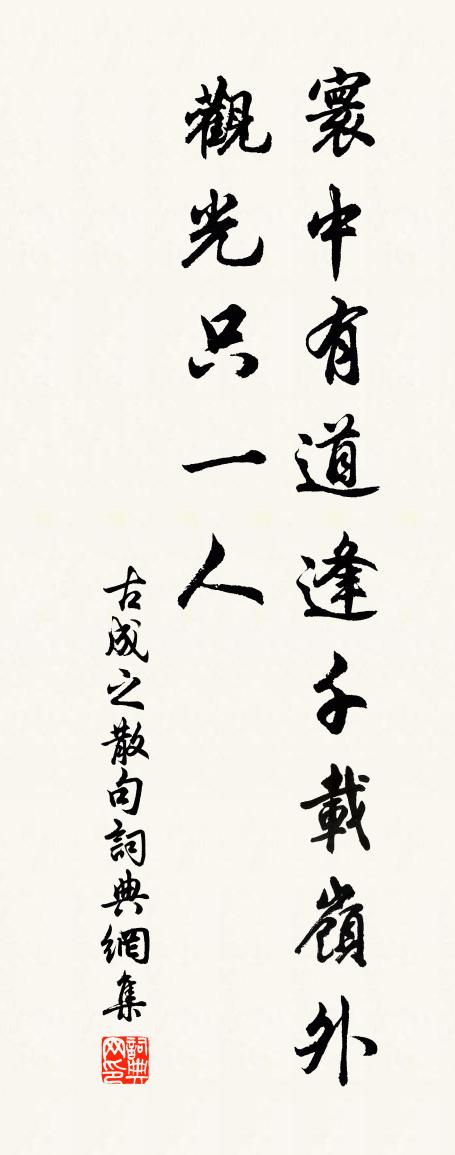 寰中有道逢千載嶺外
觀光只一人
古成之散句詞典網集
詞典网印